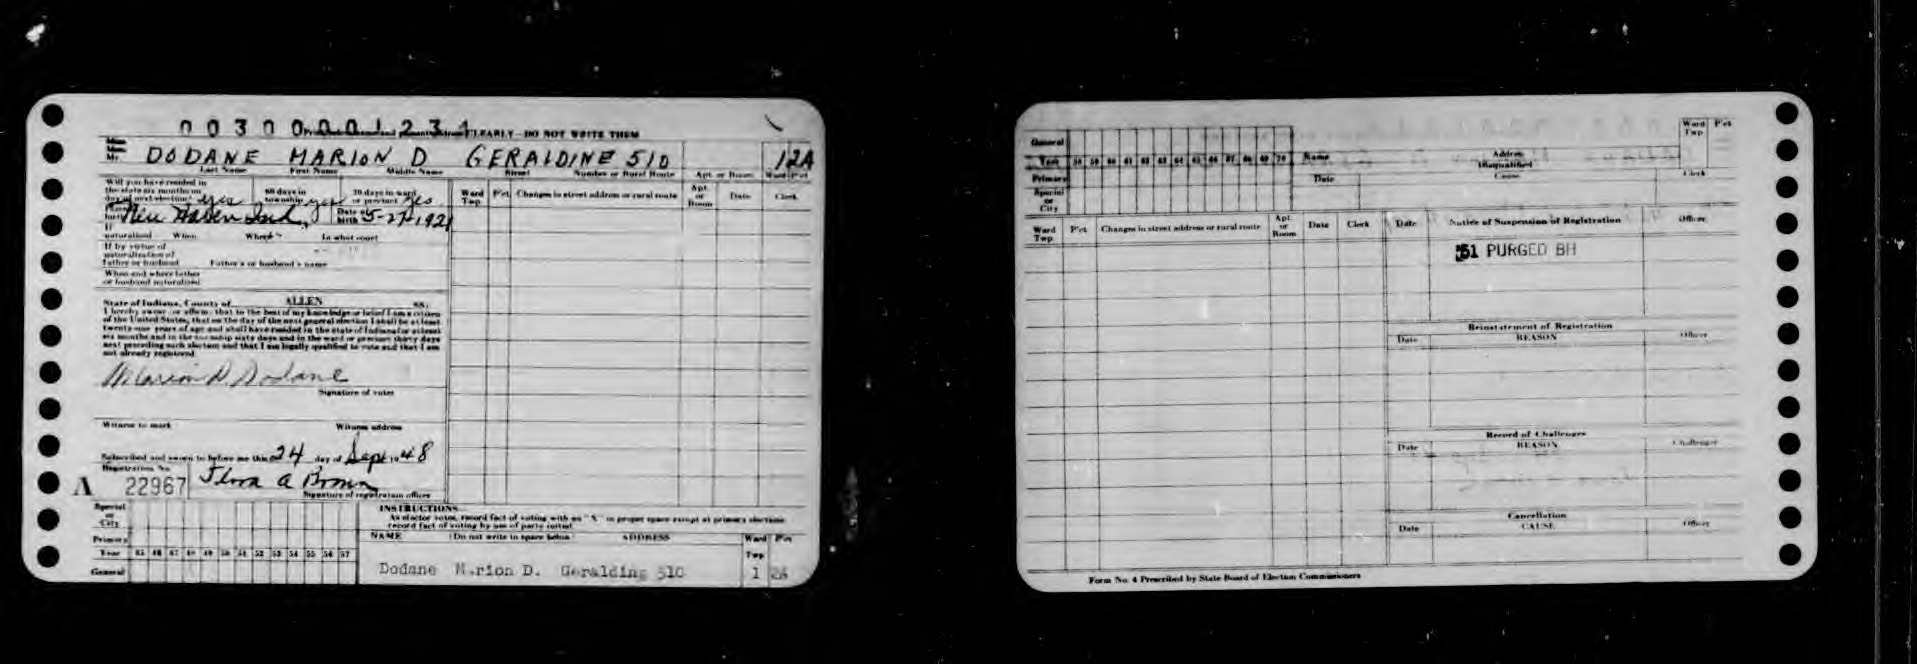 0 0 3 0 0 0 0 1 2 3 4 CLEARLY—DO NOT WRITE THEM
Mr. DODANE MARION D GERALDINE 510 12A
Last Name First Name Middle Name Street Number or Rural Route Apt. or Room Ward Pct
Will you have resided in
the state six months on 60 days in 30 days in ward
day of next election? yes township yes or precinct yes
New Haven Ind. Date of birth 5-27-1921
If
naturalized When Where In what court
If by virtue of
naturalization of
Father or husband Father's or husband's name
When and where father
or husband naturalized
State of Indiana, County of ALLEN ss.
I hereby swear (or affirm) that to the best of my knowledge or belief I am a citizen
of the United States, that on the day of the next general election I shall be at least
twenty-one years of age and shall have resided in the state of Indiana for at least
six months and in the township sixty days and in the ward or precinct thirty days
next preceding such election and that I am legally qualified to vote and that I am
not already registered.
Marion D. Dodane
Signature of voter
Witness to mark Witness address
Subscribed and sworn to before me this 24 day of Sept 1948
Registration No.
A 22967 Flora A Brown
Signature of registration officer
Ward Twp. P'ct Changes in street address or rural route Apt. or Room Date Clerk
INSTRUCTIONS
As elector votes, record fact of voting with an "X" in proper space except at primary elections
record fact of voting by use of party initial
Special or City
Primary
Year 45 46 47 48 49 50 51 52 53 54 55 56 57
General
NAME (Do not write in space below) ADDRESS Ward Twp P'ct
Dodane M.rion D. Geralding 510 1 2A
General
Year 58 59 60 61 62 63 64 65 66 67 68 69 70 Name Address Ward Twp P'ct
Primary Disqualified
Special or City Date Cause Clerk
Ward Twp. P'ct Changes in street address or rural route Apt. or Room Date Clerk
Date Notice of Suspension of Registration Officer
51 PURGED BH
Reinstatement of Registration
Date REASON Officer
Record of Challenges
Date REASON Challenger
Cancellation
Date CAUSE Officer
Form No. 4 Prescribed by State Board of Election Commissioners